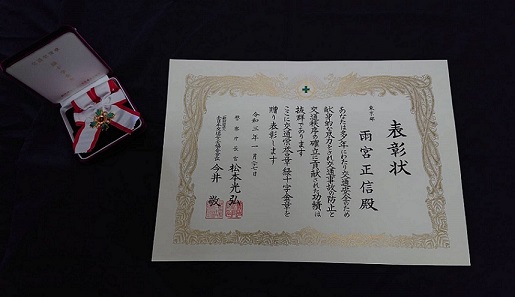 表彰状
東京都
雨宮正信殿
あなたは多年にわたり交通安全のため
献身的な努力をされ交通事故の防止と
交通秩序の確立に貢献された功績は
抜群であります
ここに交通栄誉章緑十字金章を
贈り表彰します
令和三年一月
警察庁長官 松本光弘
今井敬